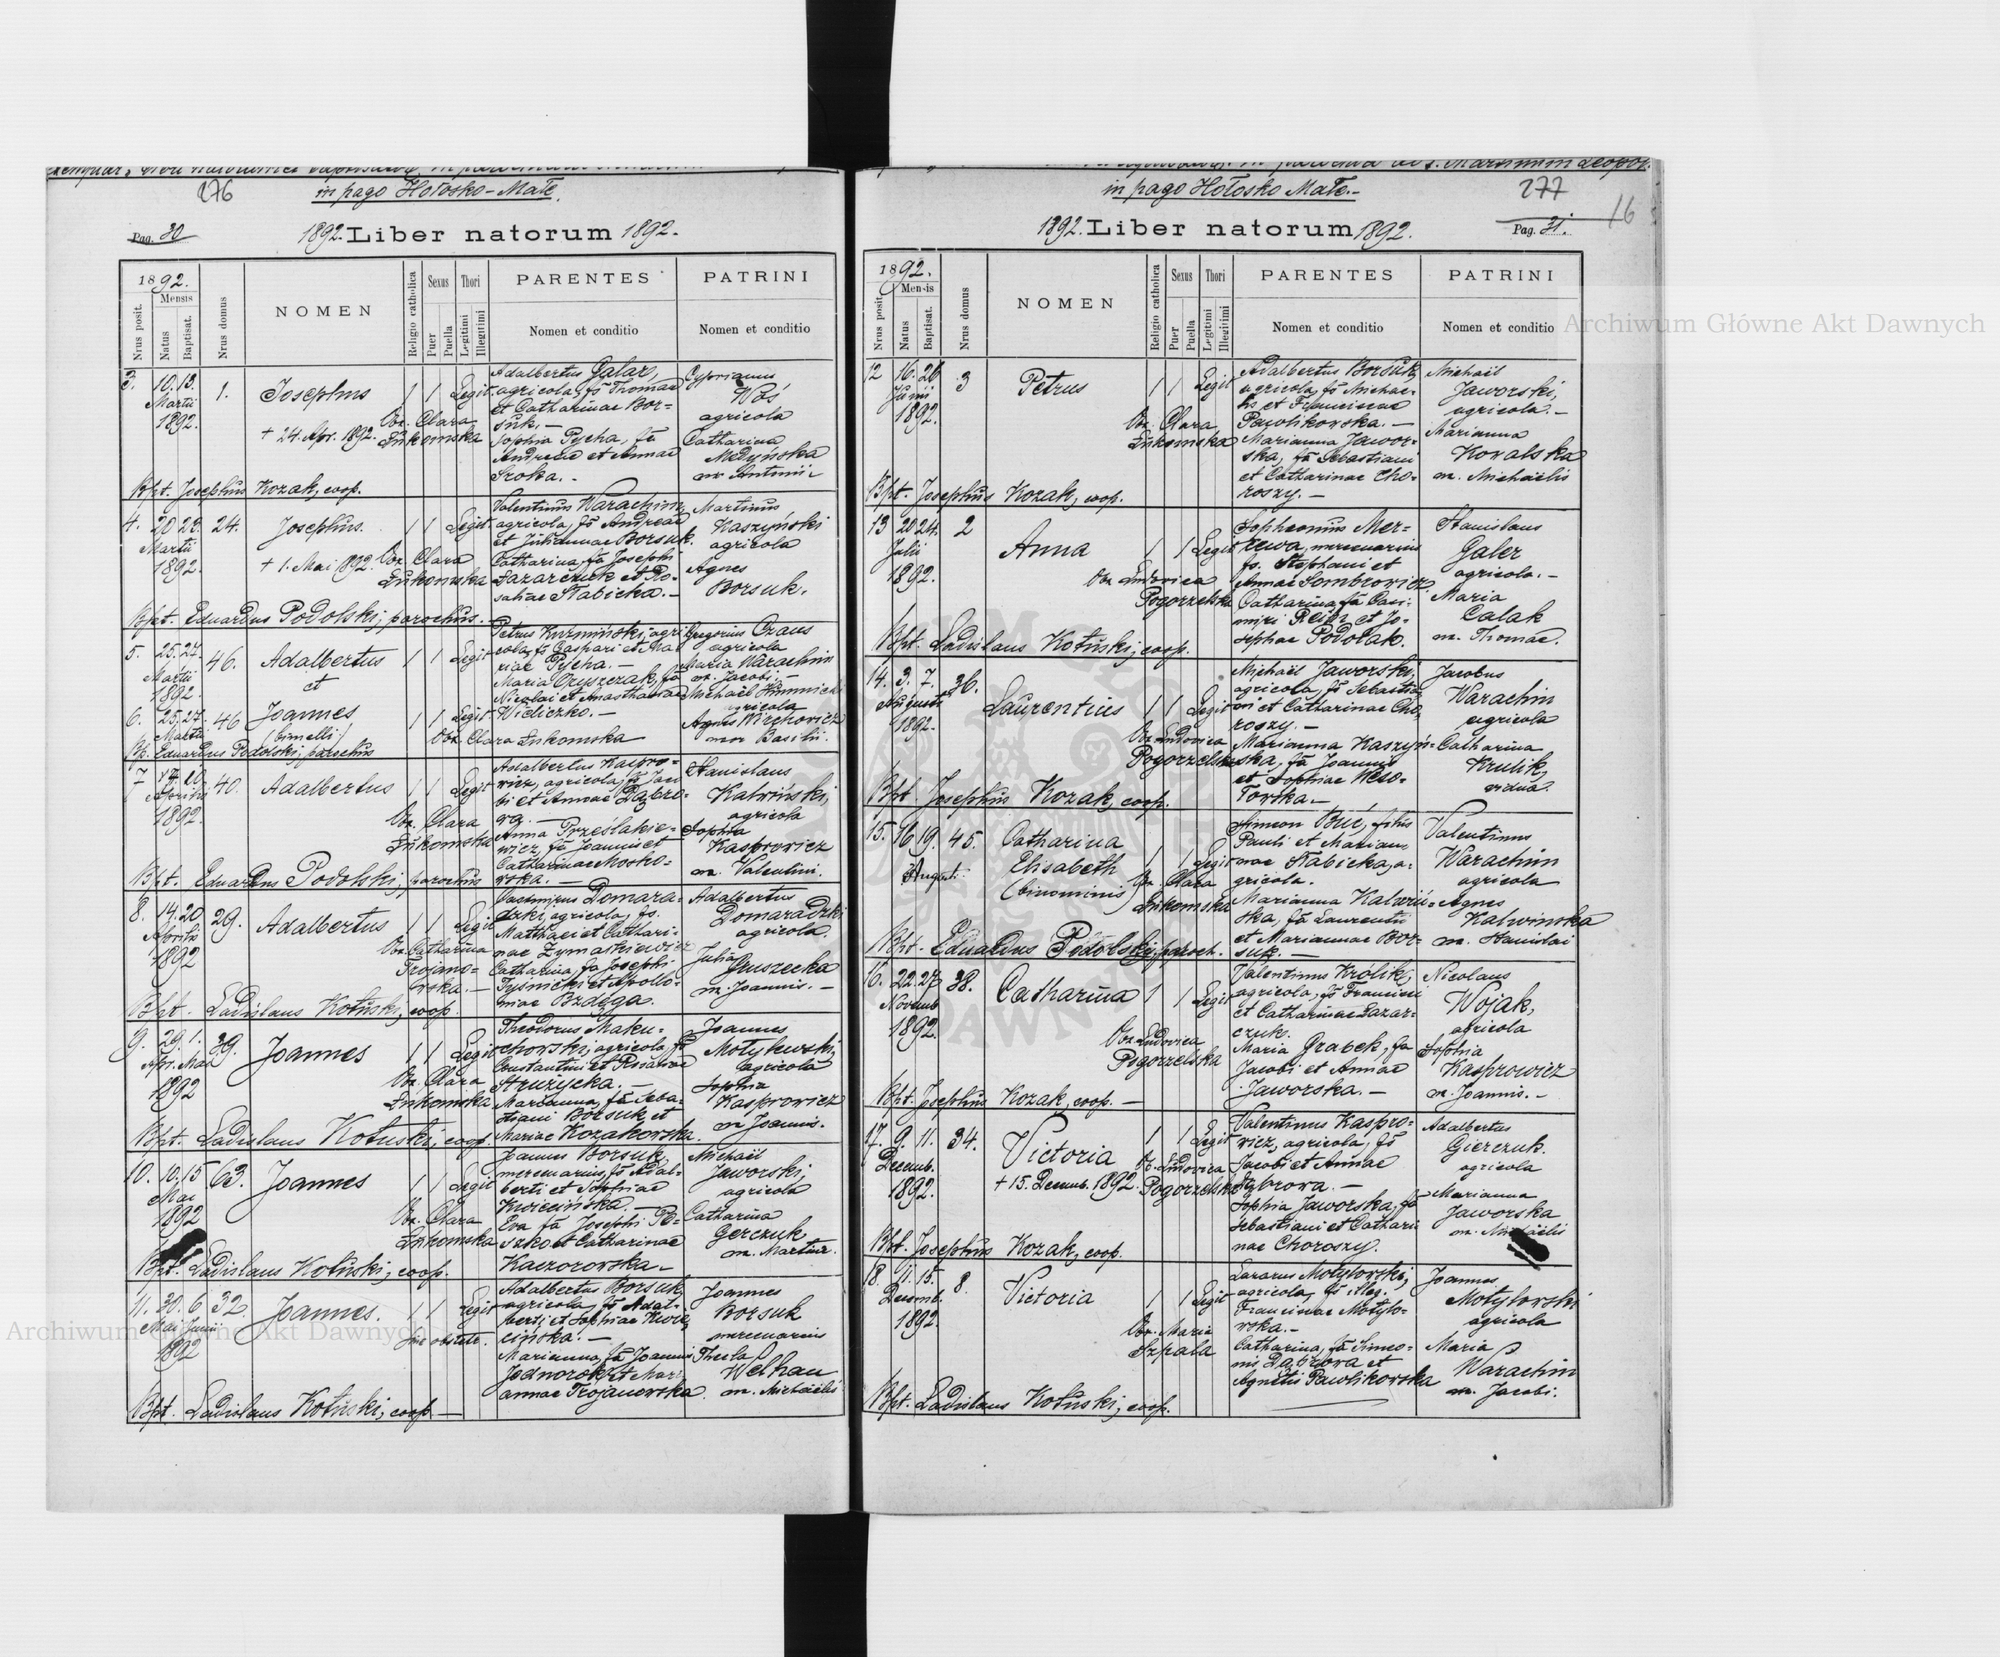 276
in pago Hołosko-Małe.
Pag. 30
1892. Liber natorum 1892.
1892.
Mensis
Nrus posit.
Natus
Baptisat.
Nrus domus
NOMEN
Religio catholica
Sexus
Puer
Puella
Thori
Legitimi
Illegitimi
PARENTES
Nomen et conditio
PATRINI
Nomen et conditio
3. 10. 13. Martii 1892. 1. Josephus 1 1 Legit
+ 24. Apr. 1892.
Obx. Clara Łukomska
Adalbertus Galar,
agricola, fs Thomae
et Catharinae Bor-
suk. -
Sophia Pycha, fa
Andreae et Annae
Sroka. -
Cyprianus
Woś
agricola
Catharina
Medyńska
ux Antonii
Bpt. Josephus Kozak, coop.
4. 20 23. Martii 1892. 24. Josephus. 1 1 Legit
+ 1. Mai 1892.
Obx. Clara Łukomska
Valentinus Warachim,
agricola, fs Andreae
et Julianae Borsuk.
Catharina, fa Josephi
Łazarczuk et Ro-
saliae Stabicka. -
Martinus
Kaszyński
agricola
Agnes
Borsuk.
Bpt. Eduardus Podolski, parochus.
5. 25. 27. Martii 1892. 46. Adalbertus 1 1 Legit
et
6. 25. 27. Martii 46 Joannes, 1 1 Legit
(gimelli)
Obx. Clara Łukomska
Petrus Kuzmiński, agri-
cola, fs Gaspari et Ma-
riae Pycha. -
Maria Oryszczak, fa
Nicolai et Anasthasiae
Wieliczko. -
Gregorius Czaus
agricola
Maria Warachim
ux. Jacobi. -
Michaël
agricola
Agnes
uxor Basilii.
Bp. Eduardus Podolski, parochus
7 Aprilis 1892. 40. Adalbertus 1 1 Legit
Obx. Clara Łukomska
Adalbertus Kaspro-
wicz, agricola, fs Jaco-
bi et Annae Dąbro-
wa. -
Anna Prześlakie-
wicz, fa Joannis et
Catharinae Mosko-
wska. -
Stanislaus
Kalwiński,
agricola
Sophia
Kasprowicz
ux. Valentini.
Bpt. Eduardus Podolski, parochus
8. 14. 20 Aprilis 1892 29. Adalbertus 1 1 Legit
Obx. Catharina
Trojano-
wska. -
Casimirus Domara-
dzki, agricola, fs.
Matthaei et Cathari-
nae Zymaskiewicz
Catharina, fa Josephi
Tyśnicki et Apollo-
niae Bzdęga.
Adalbertus
Domaradzki
agricola.
Julia
Gruszecka
ux. Joannis. -
Bpt. Ladislaus Kotuski, coop.
9. 29. 1. Apr. Mai 1892 39. Joannes 1 1 Legit
Obx. Clara Łukomska
Theodorus Maku-
chowski, agricola, fs
Constantini et Rosaliae
Strużycka. -
Marianna, fa Seba-
stiani Borsuk et
Mariae Kozakowska.
Joannes
Motylewski,
agricola
Sophia
Kasprowicz
ux Joannis.
Bpt. Ladislaus Kotuski, coop.
10. 10. 15 Mai 1892 63. Joannes 1 1 Legit
Obx. Clara Łukomska
Joannes Borsuk,
mercenarius, fs Adal-
berti et Sophiae
Kwiecińska. -
Eva fa Josephi Po-
szko et Catharinae
Kaczorowska -
Michaël
Jaworski,
agricola
Catharina
Gerczuk
ux. Martini.
Bpt. Ladislaus Kotuski, coop.
11. 30. 6 Mai Junii 1892 32. Joannes. 1 1 Legit
sine obstetr.
Adalbertus Borsuk,
agricola, fs Adal-
berti et Sophiae Kwie-
cińska. -
Marianna, fa Joannis
et Mari-
annae Trojanowska.
Joannes
Borsuk
mercenarius
Thecla
Welhan
ux. Michaëlis
Bpt. Ladislaus Kotuski, coop. -
in pago Hołosko Małe. -
277
16
1892. Liber natorum 1892.
Pag. 31.
1892.
Mensis
Nrus posit.
Natus
Baptisat.
Nrus domus
NOMEN
Religio catholica
Sexus
Puer
Puella
Thori
Legitimi
Illegitimi
PARENTES
Nomen et conditio
PATRINI
Nomen et conditio
12 16. 26 Junii 1892. 3 Petrus 1 1 Legit
Obx. Clara Łukomska
Adalbertus Borsuk,
agricola, fs Michae-
lis et Franciscae
Pawlikowska. -
Marianna Jawor-
ska, fa Sebastiani
et Catharinae Cho-
roszy. -
Michaël
Jaworski,
agricola. -
Marianna
Kowalska
ux. Michaëlis
Bpt. Josephus Kozak, coop.
13 20 24. Julii 1892. 2 Anna 1 1 Legit
Obx Ludovica
Pogorzelska
Sophronius Mer-
zewa, mercenarius
fs. Stephani et
Annae Sombrowicz
Catharina, fa Casi-
miri Reihr et Jo-
sephae Podolak.
Stanislaus
Galer
agricola. -
Maria
Calak
ux. Thomae.
Bpt. Ladislaus Kotuski, coop.
14. 3. 7. Augusti 1892. 36. Laurentius 1 1 Legit
Obx Ludovica
Pogorzelska
Michaël Jaworski,
agricola, fs Sebastia-
ni et Catharinae Cho-
roszy. -
Marianna Kaszyń-
ska, fa Joannis
et Sophiae Weso-
łowska -
Jacobus
Warachim
agricola
Catharina
Krulik,
vidua
Bpt. Josephus Kozak, coop.
15. 16 19. Augusti 45. Catharina
Elisabeth
(binominis) 1 1 Legit
Obx. Clara
Łukomska
Simeon Buć, filius
Pauli et Marian-
nae Stabicka, a-
gricola.
Marianna Kalwiń-
ska, fa Laurentii
et Mariannae Bor-
suk. -
Valentinus
Warachim
agricola
Agnes
Kalwinska
ux. Stanislai
Bpt. Eduardus Podolski, paroch.
16. 22. 27 Novemb. 1892. 38. Catharina 1 1 Legit
Obx. Ludovica
Pogorzelska
Valentinus Królik,
agricola, fs Francisci
et Catharinae Łazar-
czuk.
Maria Grabek, fa
Jacobi et Annae
Jaworska. -
Nicolaus
Wojak,
agricola
Sophia
Kasprowicz
ux. Joannis. -
Bpt. Josephus Kozak, coop. -
17. 9. 11. Decemb. 1892. 34. Victoria 1 1 Legit
+ 15. Decemb. 1892.
Ob. Ludovica
Pogorzelska
Valentinus Kaspro-
wicz, agricola, fs
Jacobi et Annae
Dąbrowa. -
Sophia Jaworska, fa
Sebastiani et Cathari-
nae Choroszy.
Adalbertus
Gierczuk.
agricola
Marianna
Jaworska
ux. Michaëlis
Bpt. Josephus Kozak, coop.
18. 11. 15. Decemb. 1892. 8. Victoria 1 1 Legit
Obx. Maria
Szpala
Lazarus Motylowski,
agricola, fs illeg.
Franciscae Motylo-
wska. -
Catharina, fa Simeo-
nis Dąbrowa et
Agnetis Pawlikowska
Joannes
Motylowski
agricola
Maria
Warachim
ux. Jacobi.
Bpt. Ladislaus Kotuski, coop.
Archiwum Główne Akt Dawnych
Archiwum Główne Akt Dawnych